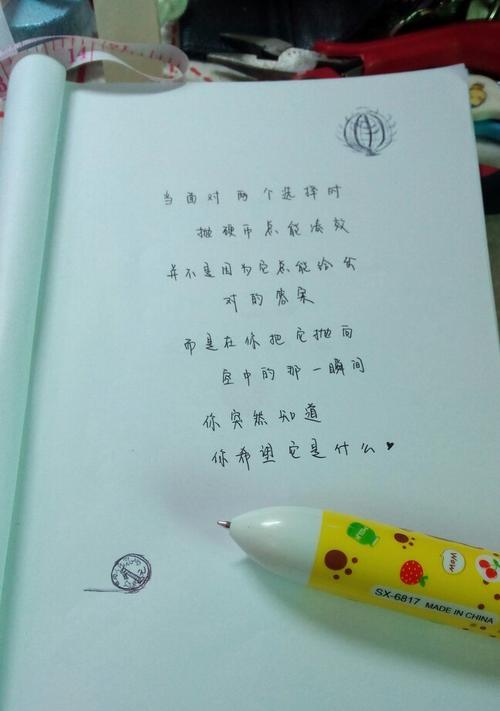 当面对两个选择时
抛硬币总能凑效
并不是因为它总能给出
对的答案
而是在你把它抛向
空中的那一瞬间
你突然知道
你希望它是什么♥
SX-6817 MADE IN CHINA
Wow
14